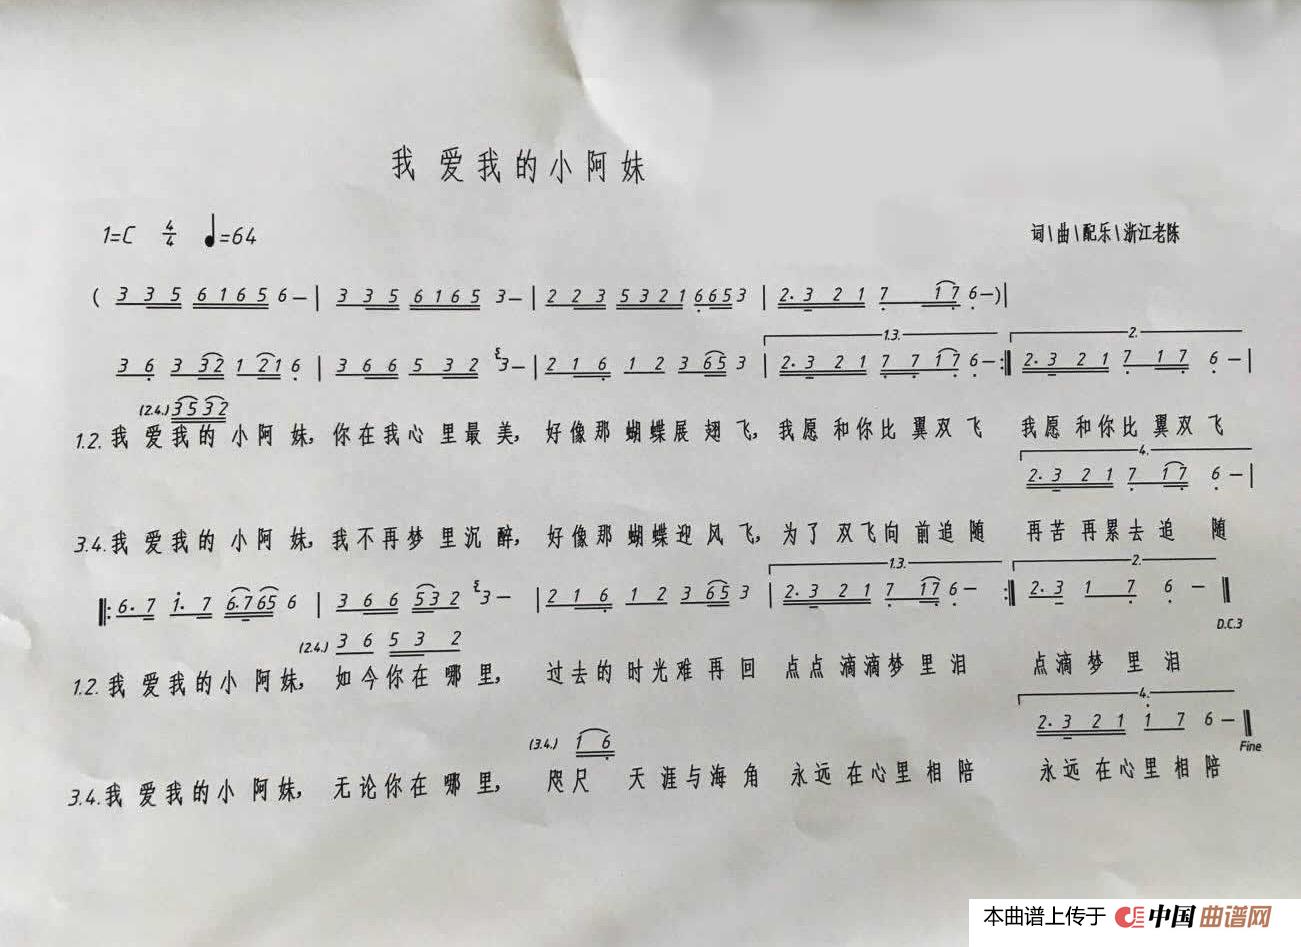 我爱我的小阿妹
1=C 4/4 ♩=64
词\曲\配乐\浙江老陈
( 3 3 5 6 1 6 5 6 – | 3 3 5 6 1 6 5 3 – | 2 2 3 5 3 2 1 6 6 5 3 | 2. 3 2 1 7 1 7 6 – ) |
1.3. 2.
3 6 3 3 2 1 2 1 6 | 3 6 6 5 3 2 3 – | 2 1 6 1 2 3 6 5 3 | 2. 3 2 1 7 7 1 7 6 – :‖ 2. 3 2 1 7 1 7 6 – |
(2.4.) 3 5 3 2
1.2. 我爱我的小阿妹, 你在我心里最美, 好像那蝴蝶展翅飞, 我愿和你比翼双飞 我愿和你比翼双飞
4.
2. 3 2 1 7 1 7 6 – |
3.4. 我爱我的小阿妹, 我不再梦里沉醉, 好像那蝴蝶迎风飞, 为了双飞向前追随 再苦再累去追随
1.3. 2.
‖: 6. 7 1. 7 6. 7 6 5 6 | 3 6 6 5 3 2 3 – | 2 1 6 1 2 3 6 5 3 | 2. 3 2 1 7 1 7 6 – :‖ 2. 3 1 7 6 – ‖
D.C.3
(2.4.) 3 6 5 3 2
1.2. 我爱我的小阿妹, 如今你在哪里, 过去的时光难再回 点点滴滴梦里泪 点滴梦里泪
4.
2. 3 2 1 1 7 6 – ‖
Fine
(3.4.) 1 6
3.4. 我爱我的小阿妹, 无论你在哪里, 咫尺天涯与海角 永远在心里相陪 永远在心里相陪
本曲谱上传于 中国曲谱网